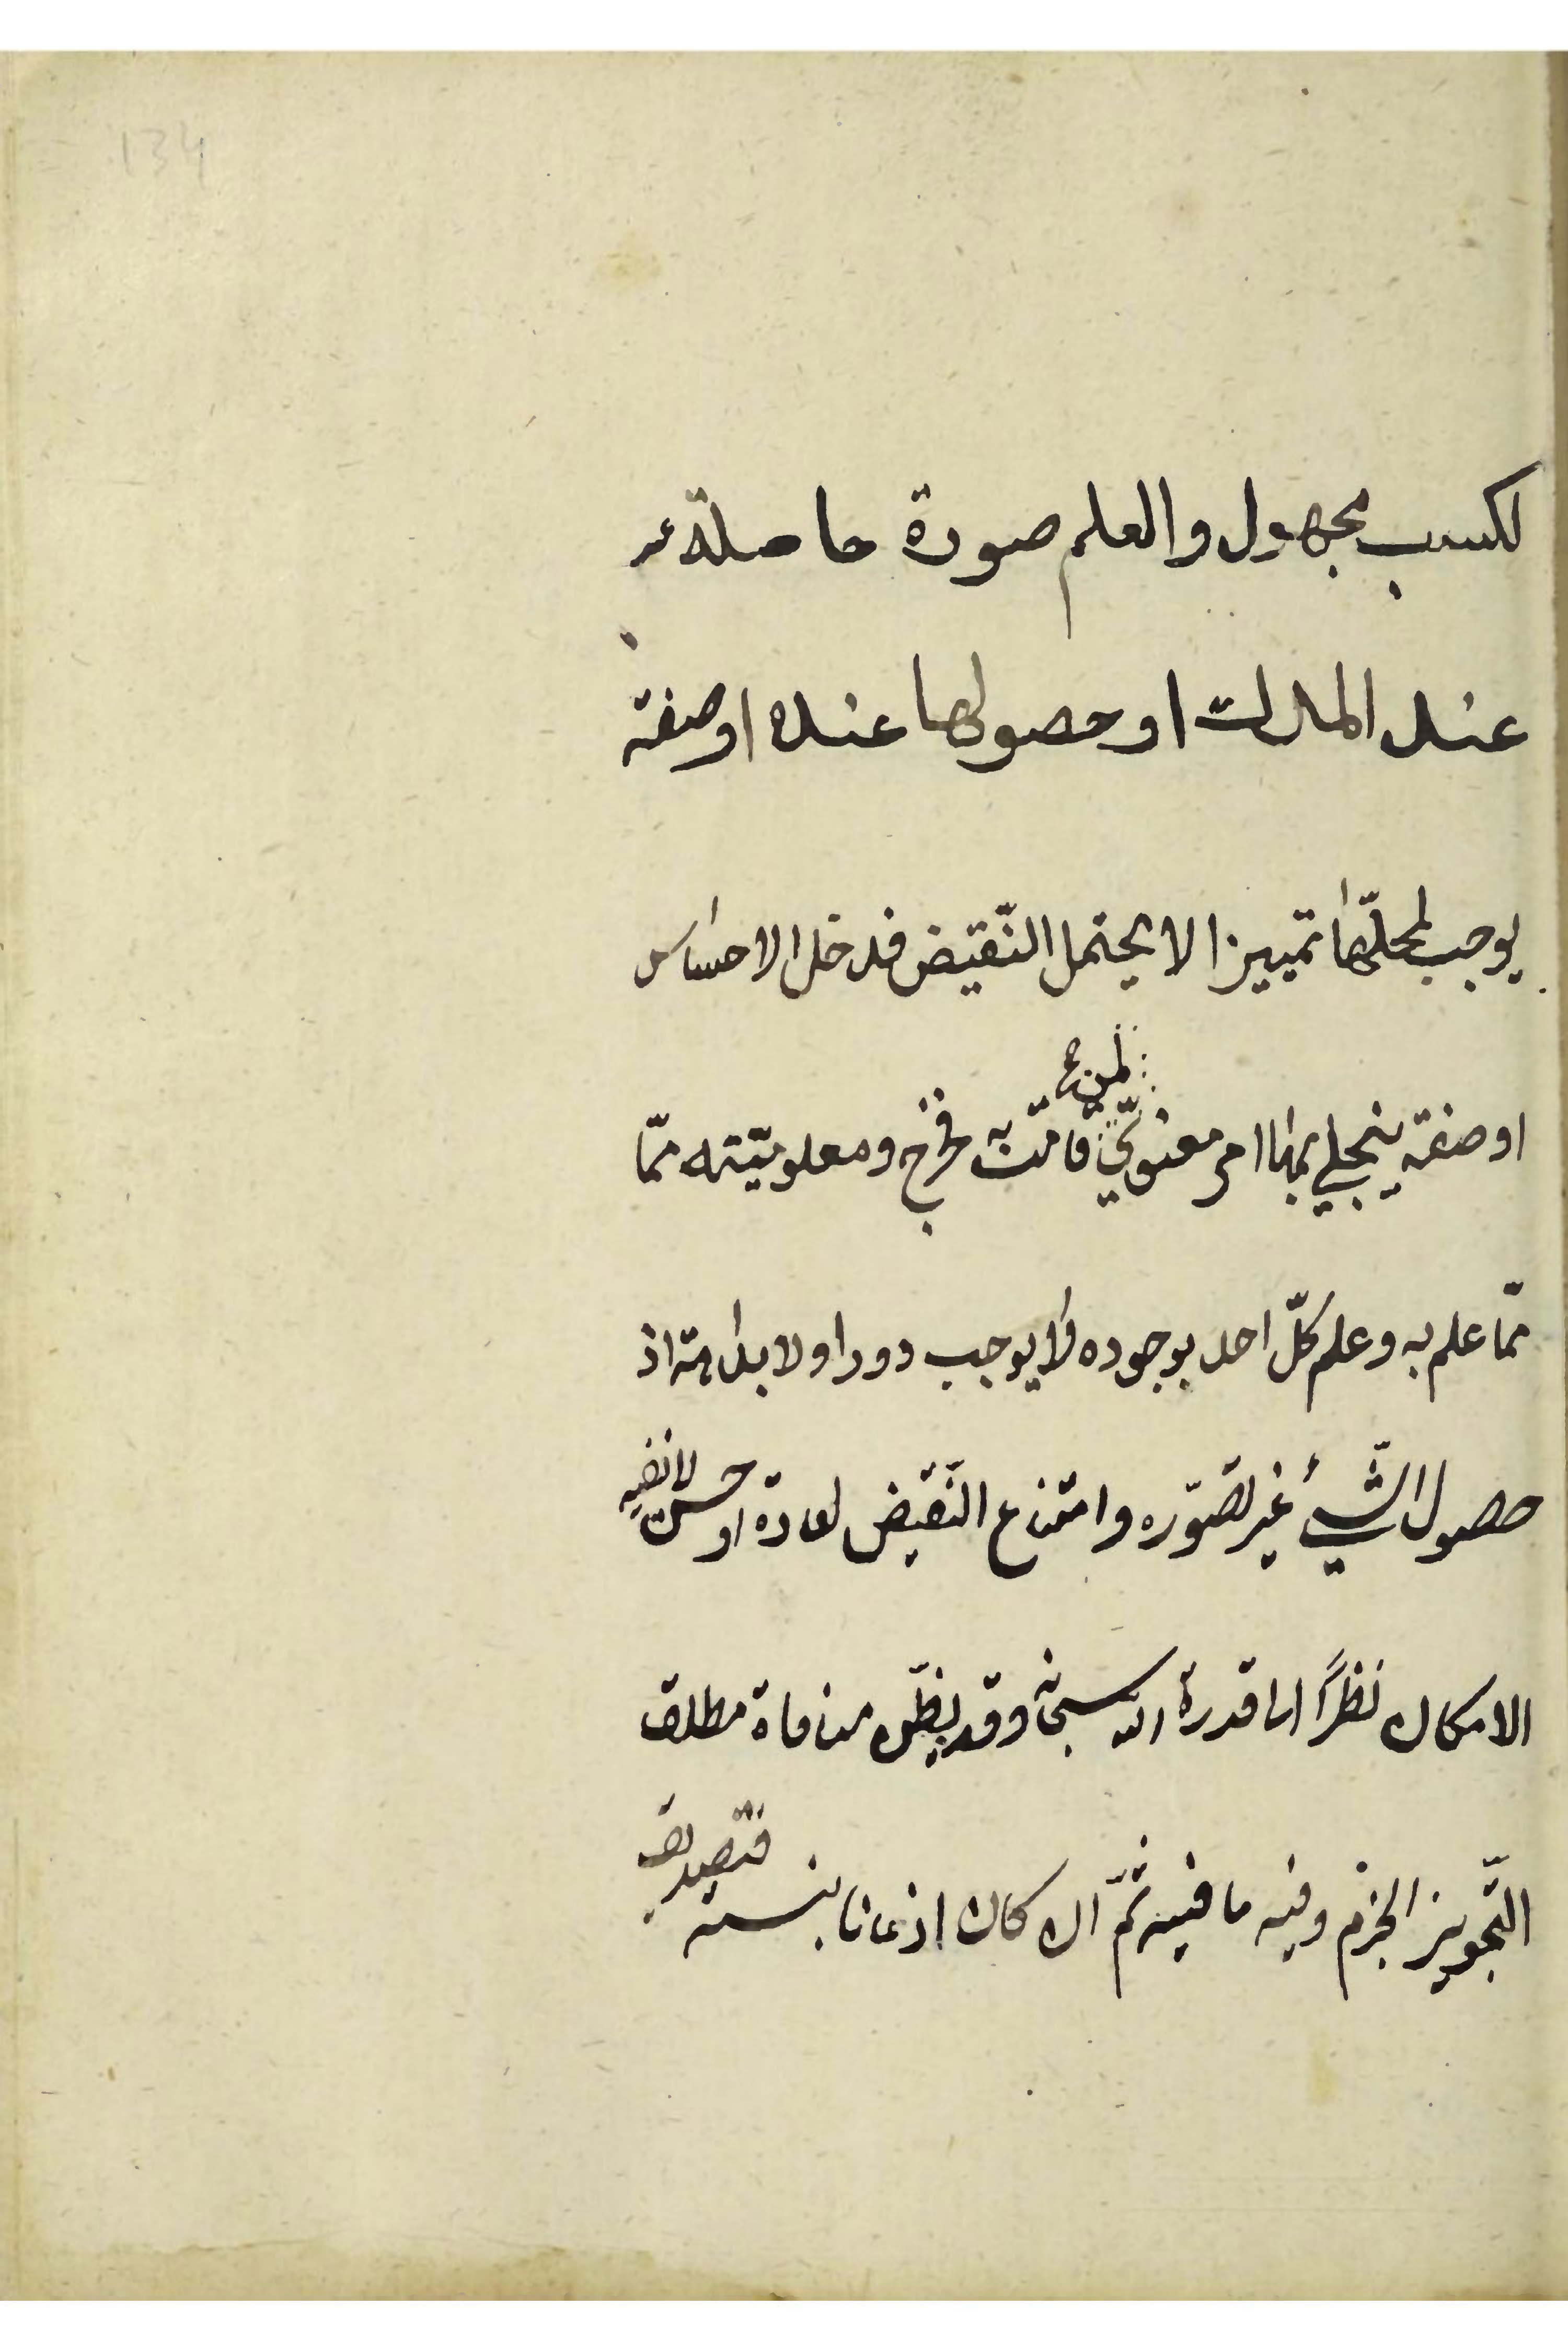 134
لكسب مجهول والعلم صورة حاصلة
عند المدرك او حصولها عنده او صفة
يوجب لمحلّها تمييزا لا يحتمل النّقيض فدخل الاحساس
او صفة ينجلي بها امر معنويّ لمن قامت به فخرج ومعلوميّته ممّا
ممّا علم به وعلم كلّ احد بوجوده لا يوجب دورا ولا بداهته اذ
حصول الشّيء غير تصوّره وامتناع النّقيض لعادة او حسّ لا ينفيه
الامكان نظرًا الى قدرة الله سبحانه وقد يظنّ منافاة مطلق
التّجويز الجزم وفيه ما فيه ثمّ ان كان اذعانا بنسبة فتصديق